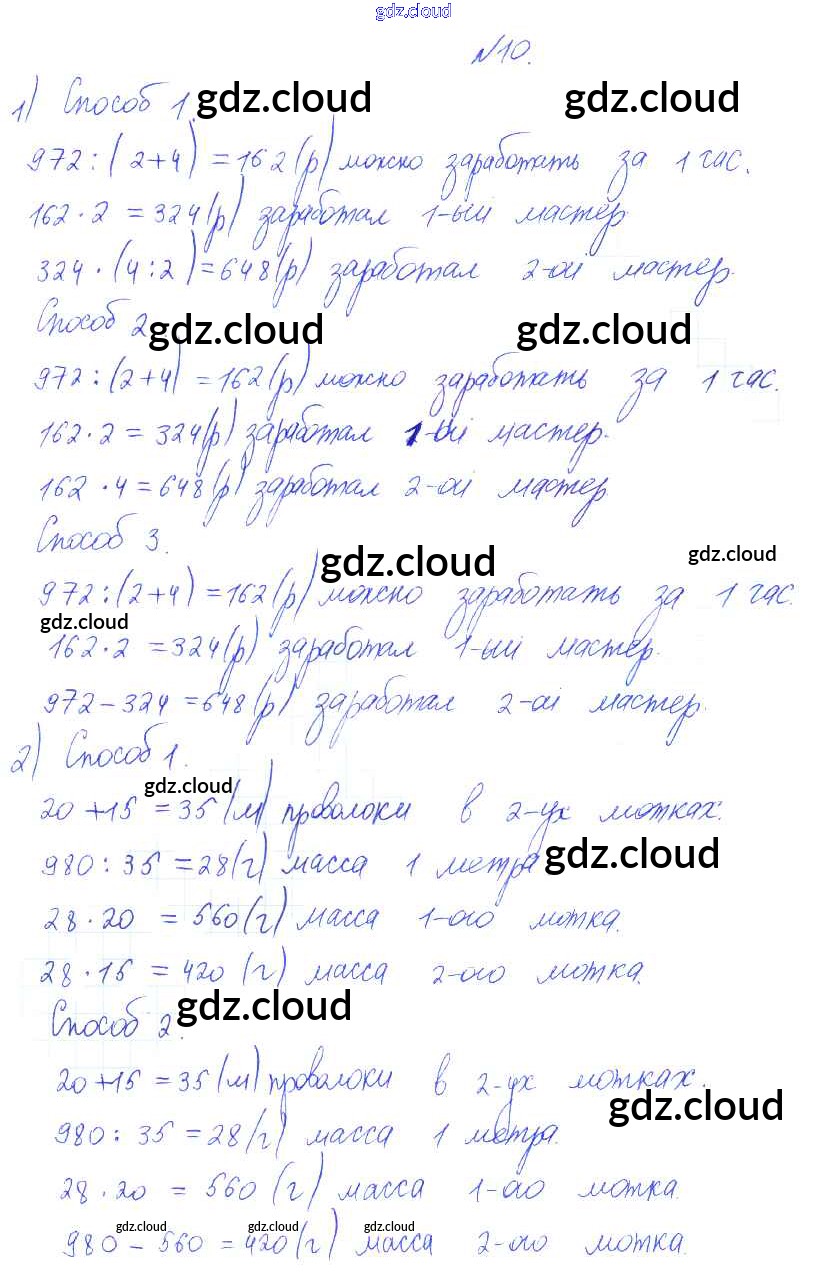 gdz.cloud
№10.
1) Способ 1. gdz.cloud gdz.cloud
972 : (2+4) = 162 (р) можно заработать за 1 час.
162 · 2 = 324 (р) заработал 1-ый мастер.
324 · (4:2) = 648 (р) заработал 2-ой мастер.
Способ 2. gdz.cloud gdz.cloud
972 : (2+4) = 162 (р) можно заработать за 1 час.
162 · 2 = 324 (р) заработал 1-ый мастер.
162 · 4 = 648 (р) заработал 2-ой мастер
Способ 3. gdz.cloud gdz.cloud
972 : (2+4) = 162 (р) можно заработать за 1 час.
gdz.cloud
162 · 2 = 324 (р) заработал 1-ый мастер.
972 – 324 = 648 (р) заработал 2-ой мастер.
2) Способ 1.
gdz.cloud
20 + 15 = 35 (м) проволоки в 2-ух мотках.
980 : 35 = 28 (г) масса 1 метра gdz.cloud
28 · 20 = 560 (г) масса 1-ого мотка.
28 · 15 = 420 (г) масса 2-ого мотка.
Способ 2. gdz.cloud
20 + 15 = 35 (м) проволоки в 2-ух мотках.
gdz.cloud
980 : 35 = 28 (г) масса 1 метра.
28 · 20 = 560 (г) масса 1-ого мотка.
gdz.cloud gdz.cloud gdz.cloud
980 – 560 = 420 (г) масса 2-ого мотка.